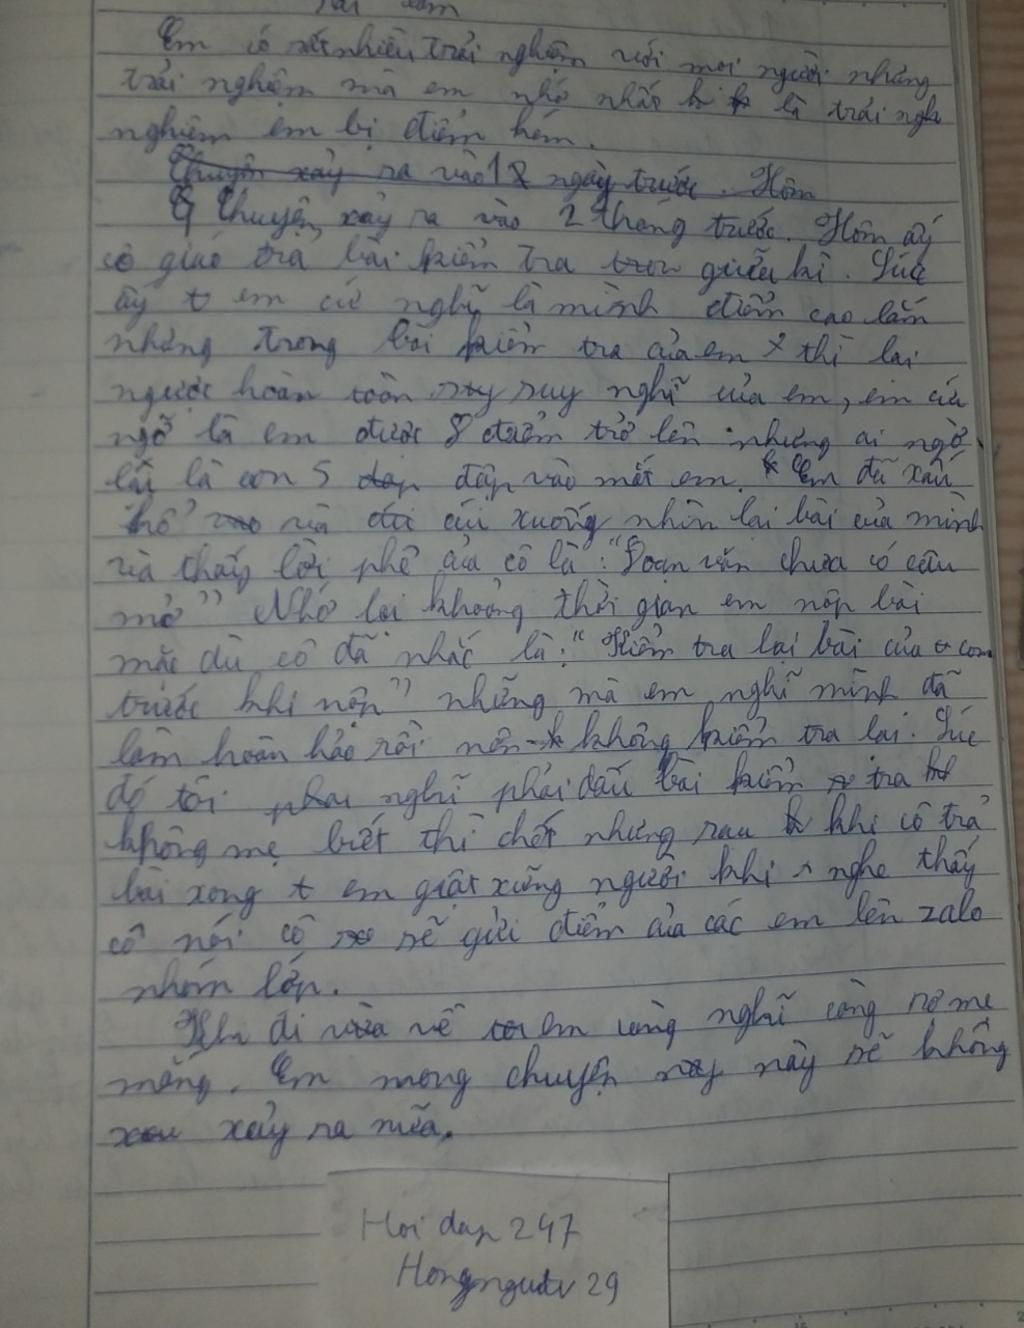 Bài làm
Em có rất nhiều trải nghiệm với mọi người nhưng
trải nghiệm mà em nhớ nhất là trải ngh
nghiệm em bị điểm kém.
Chuyện xảy ra vào 12 ngày trước. Hôm
Chuyện xảy ra vào 2 tháng trước. Hôm ấy
cô giáo trả bài kiểm tra giữa kì. Lúc
ấy t em cứ nghĩ là mình điểm cao lắm
nhưng trong bài kiểm tra của em thì lại
ngược hoàn toàn suy nghĩ của em, em cứ
ngỡ là em được 8 điểm trở lên nhưng ai ngờ
lại là con 5 đập vào mắt em. Em đã xấu
hổ và cúi xuống nhìn lại bài của mình
và thấy lời phê của cô là: "Đoạn văn chưa có câu
mở" Nhớ lại khoảng thời gian em nộp bài
mặc dù cô đã nhắc là: "Kiểm tra lại bài của con
trước khi nộp" nhưng mà em nghĩ mình đã
làm hoàn hảo rồi nên không kiểm tra lại. Lúc
đó tôi nghĩ phải dấu bài kiểm tra
không mẹ biết thì chết nhưng sau khi cô trả
bài xong t em giật xững người khi nghe thấy
cô nói cô sẽ gửi điểm của các em lên zalo
nhóm lớp.
Khi đi về em càng nghĩ càng sợ mẹ
mắng. Em mong chuyện này sẽ không
xảy ra nữa.
Hoi dap 247
29